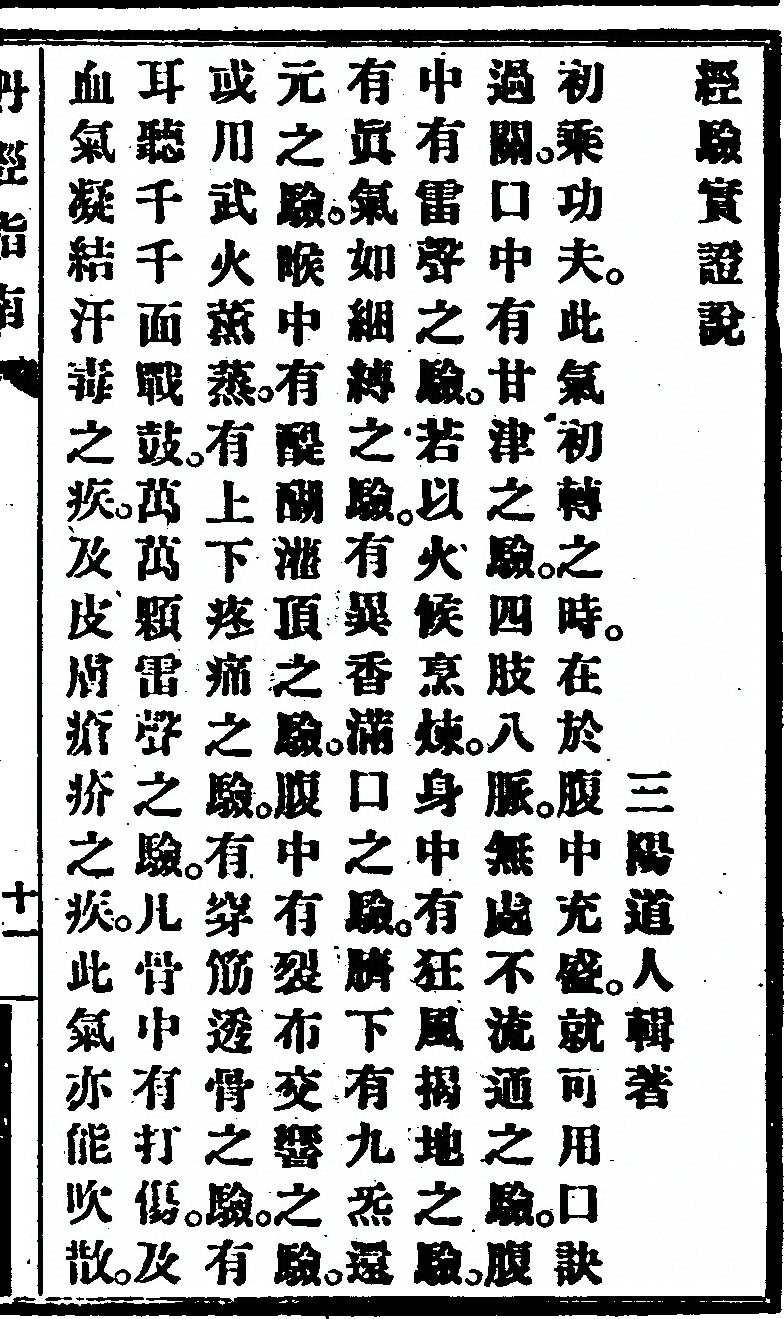 經驗實證說
三陽道人輯著
初乘功夫。此氣初轉之時。在於腹中充盛。就可用口訣
過關。口中有甘津之驗。四肢八脈。無處不流通之驗。腹
中有雷聲之驗。若以火候烹煉。身中有狂風揭地之驗。
有眞氣如綑縛之驗。有異香滿口之驗。臍下有九炁還
元之驗。喉中有醍醐灌頂之驗。腹中有裂布交響之驗。
或用武火薰蒸。有上下疼痛之驗。有穿筋透骨之驗。有
耳聽千千面戰鼓。萬萬顆雷聲之驗。凡骨中有打傷。及
血氣凝結汗毒之疾。及皮膚瘡疥之疾。此氣亦能吹散。
丹經指南
十一